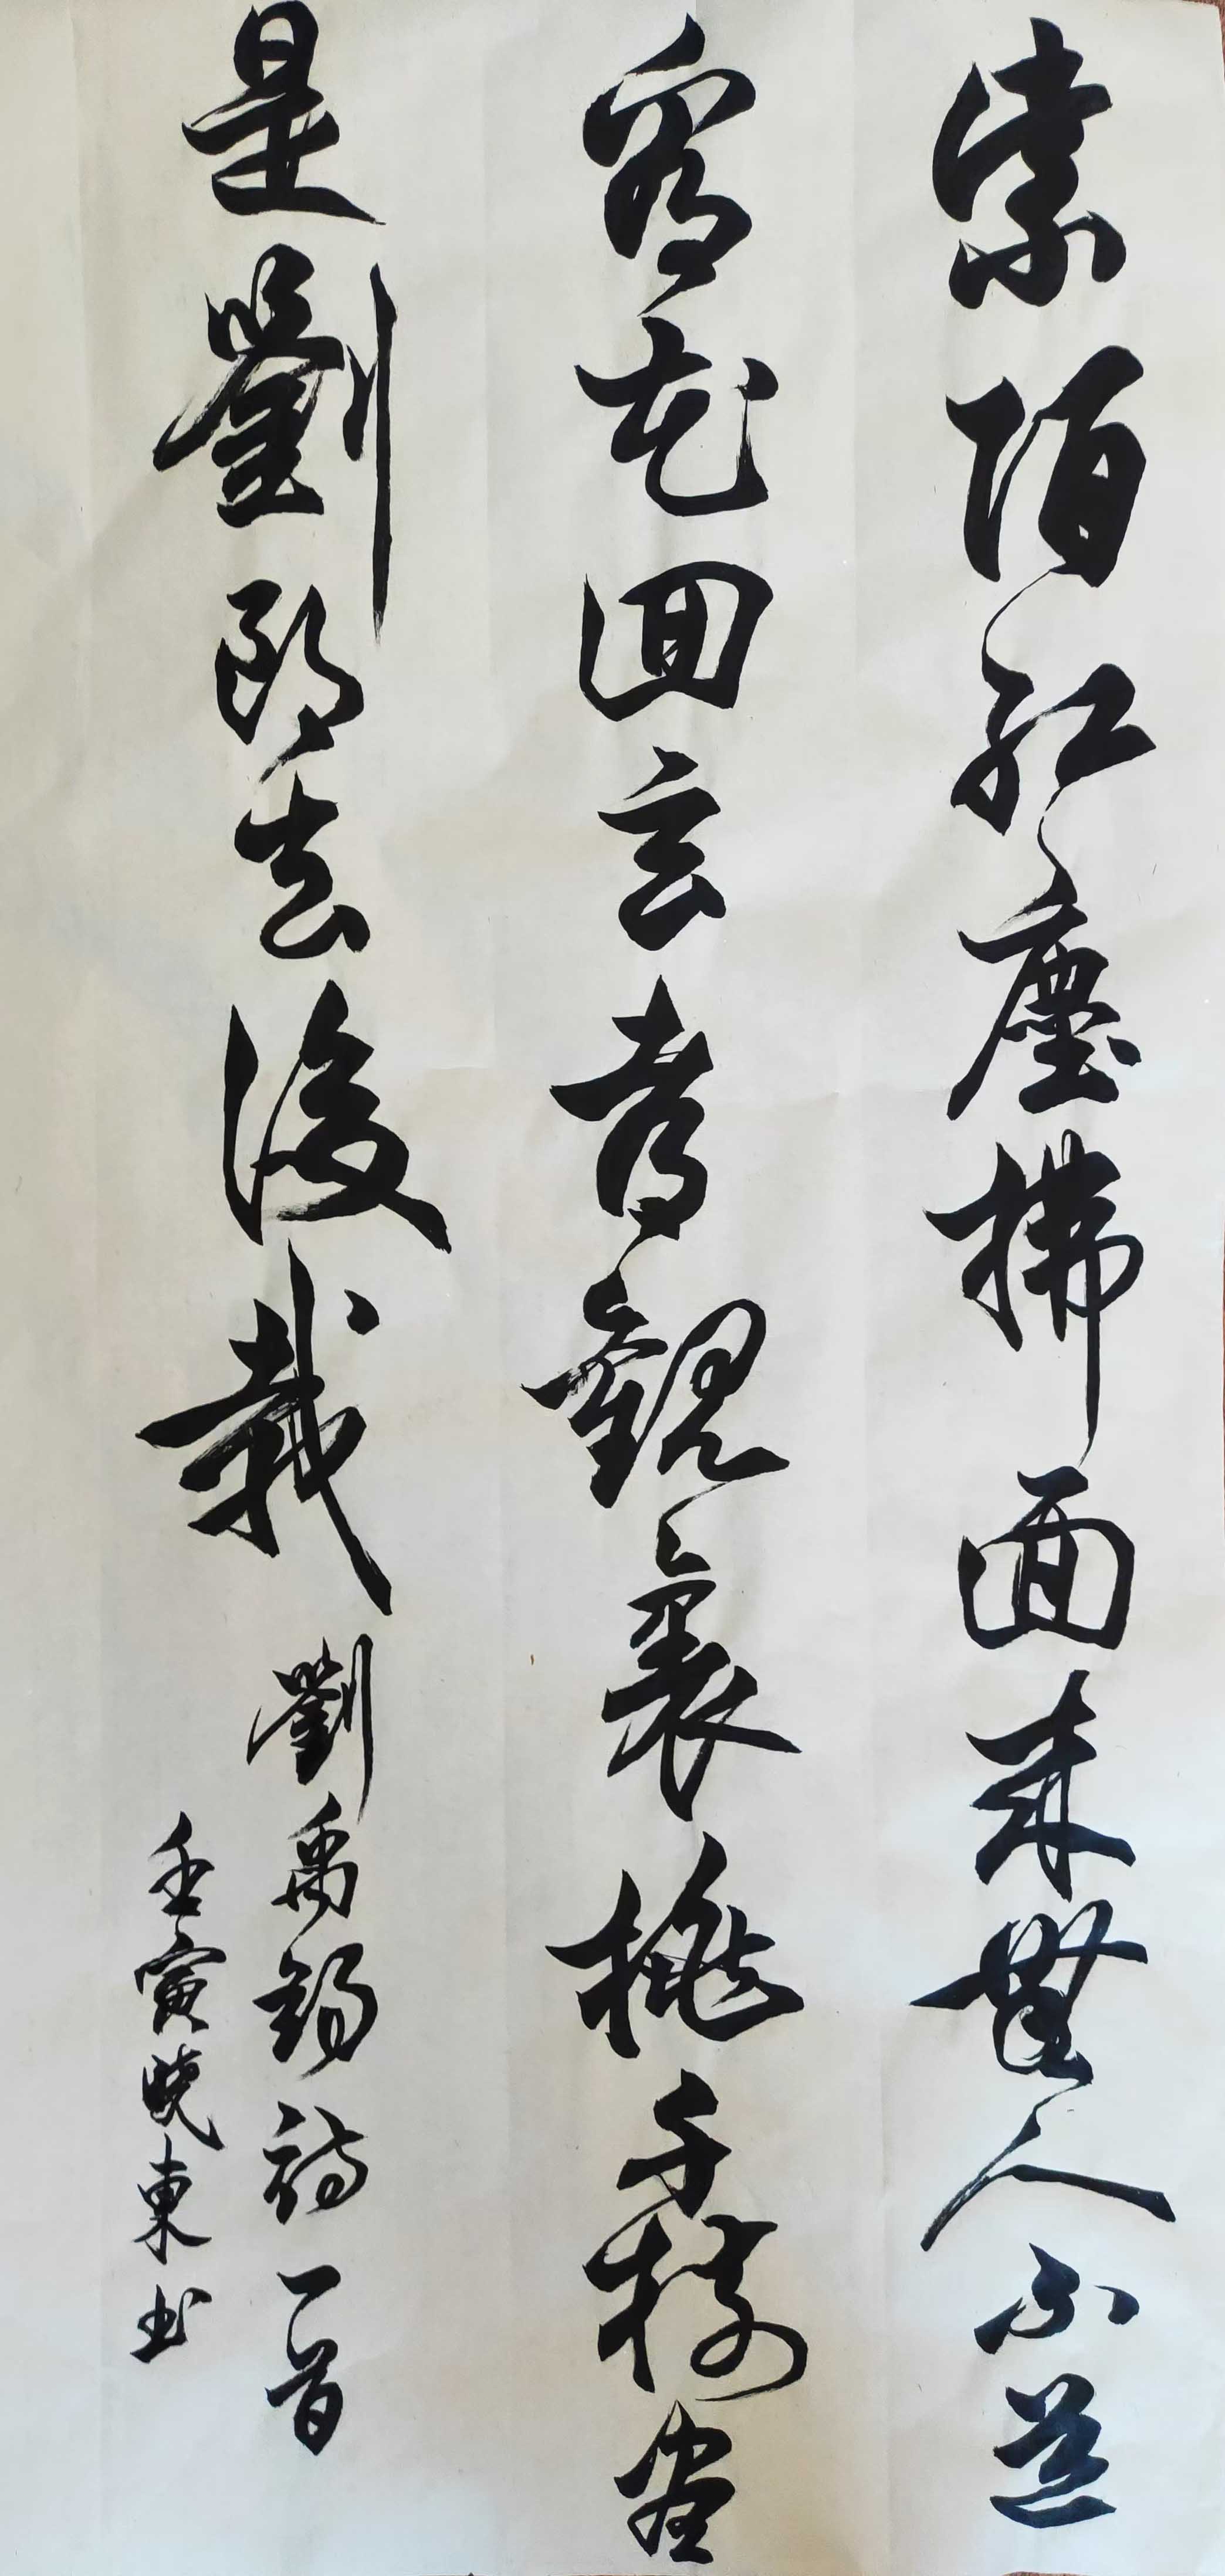 紫陌紅塵拂面來無人不道
看花回玄都觀裏桃千樹盡
是劉郎去後栽
劉禹錫詩一首
壬寅曉東书